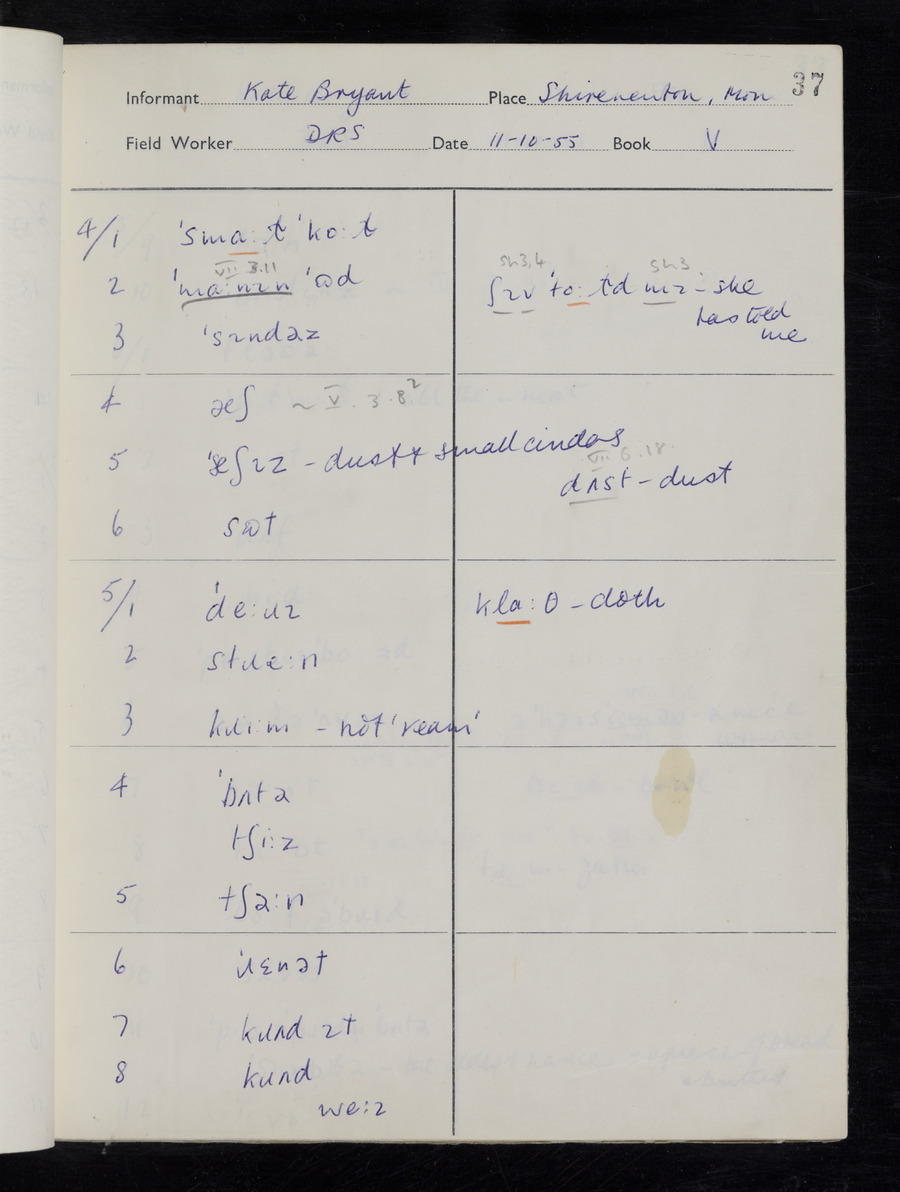 37
Informant Kate Bryant Place Shirenewton, Mon
Field Worker DRS Date 11-10-55 Book V
4/1 ˈsmaːtˈkoːt
VII 3.11
2 ˈmaːnɪnˈɷd
sh3,4 sh3
ʃɪv ˈtoːɫd mɪ - she has told me
3 ˈsɪndəz
4 æʃ ~ V. 3.8²
5 ˈæʃɪz - dust + small cinders
VII 6.18
dʌst - dust
6 sɷt
5/1 ˈdeːɹɪ
klaːθ - cloth
2 stɹeːn
3 kɹiːm - not 'ream'
4 ˈbʌtə
tʃiːz
5 tʃəːn
6 ˈɹɛnət
7 kɹʌd ɪt
8 kɹʌd
weːɪ